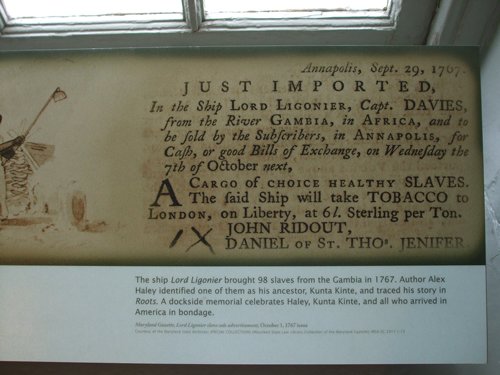 Annapolis, Sept. 29, 1767.
JUST IMPORTED,
In the Ship LORD LIGONIER, Capt. DAVIES,
from the River GAMBIA, in AFRICA, and to
be ſold by the Subſcribers, in ANNAPOLIS, for
Caſh, or good Bills of Exchange, on Wedneſday the
7th of October next,
A CARGO OF CHOICE HEALTHY SLAVES.
The ſaid Ship will take TOBACCO to
LONDON, on Liberty, at 6l. Sterling per Ton.
JOHN RIDOUT,
DANIEL OF ST. THOs. JENIFER.
The ship Lord Ligonier brought 98 slaves from the Gambia in 1767. Author Alex
Haley identified one of them as his ancestor, Kunta Kinte, and traced his story in
Roots. A dockside memorial celebrates Haley, Kunta Kinte, and all who arrived in
America in bondage.
Maryland Gazette, Lord Ligonier slave sale advertisement, October 1, 1767 issue